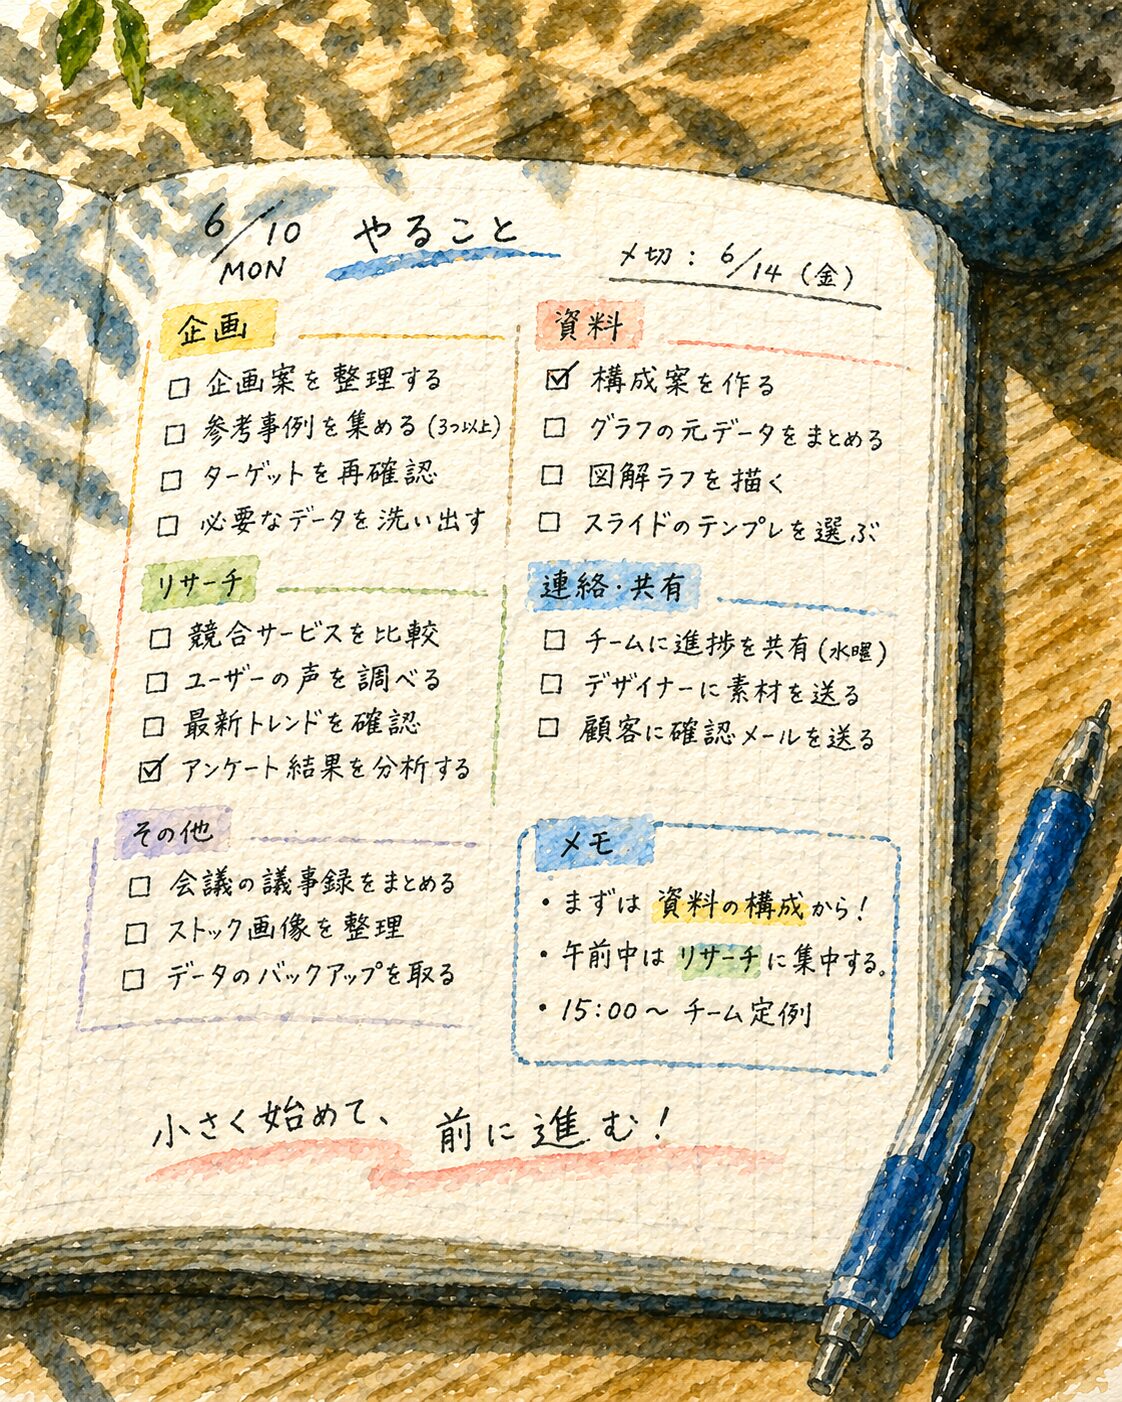 6/10 やること
MON
〆切：6/14（金）
企画
□ 企画案を整理する
□ 参考事例を集める（3つ以上）
□ ターゲットを再確認
□ 必要なデータを洗い出す
資料
☑ 構成案を作る
□ グラフの元データをまとめる
□ 図解ラフを描く
□ スライドのテンプレを選ぶ
リサーチ
□ 競合サービスを比較
□ ユーザーの声を調べる
□ 最新トレンドを確認
☑ アンケート結果を分析する
連絡・共有
□ チームに進捗を共有（水曜）
□ デザイナーに素材を送る
□ 顧客に確認メールを送る
その他
□ 会議の議事録をまとめる
□ ストック画像を整理
□ データのバックアップを取る
メモ
・まずは 資料の構成から！
・午前中は リサーチに集中する。
・15:00〜 チーム定例
小さく始めて、前に進む！